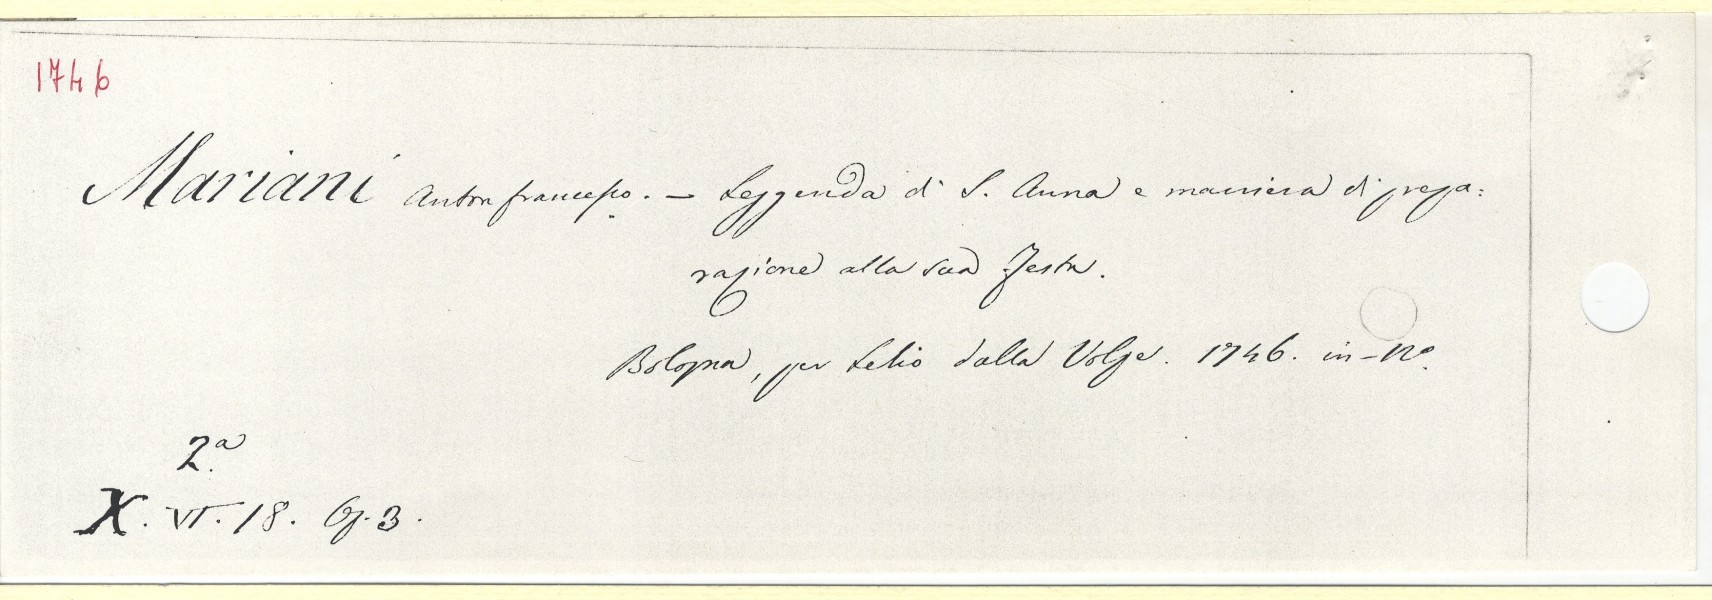 1746
Mariani Antonfrancesco. – Leggenda di S. Anna e maniera di prepa:
razione alla sua Festa.
Bologna, per Lelio dalla Volpe. 1746. in-12°
2.a
X. VI. 18. Op. 3.